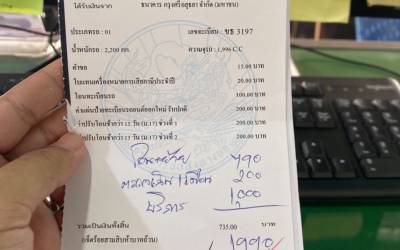 ได้รับเงินจาก ธนาคาร กรุงศรีอยุธยา จำกัด (มหาชน)
ประเภทรถ : 01 เลขทะเบียน : ขธ 3197
น้ำหนักรถ : 2,200 กก. ความจุรถ : 1,996 C.C
ค่าขอ 15.00 บาท
ใบแทนเครื่องหมายการเสียภาษีประจำปี 20.00 บาท
โอนทะเบียนรถ 100.00 บาท
ค่าแผ่นป้ายทะเบียนรถยนต์ออกใหม่ รับปกติ 200.00 บาท
ค่าปรับโอนช้ากว่า 15 วัน (ม.17) ช่วงที่ 1 200.00 บาท
ค่าปรับโอนช้ากว่า 15 วัน (ม.17) ช่วงที่ 2 200.00 บาท
790
200
บริการ 1,000
รวมเป็นเงินทั้งสิ้น 735.00 บาท
(เจ็ดร้อยสามสิบห้าบาทถ้วน) 1990